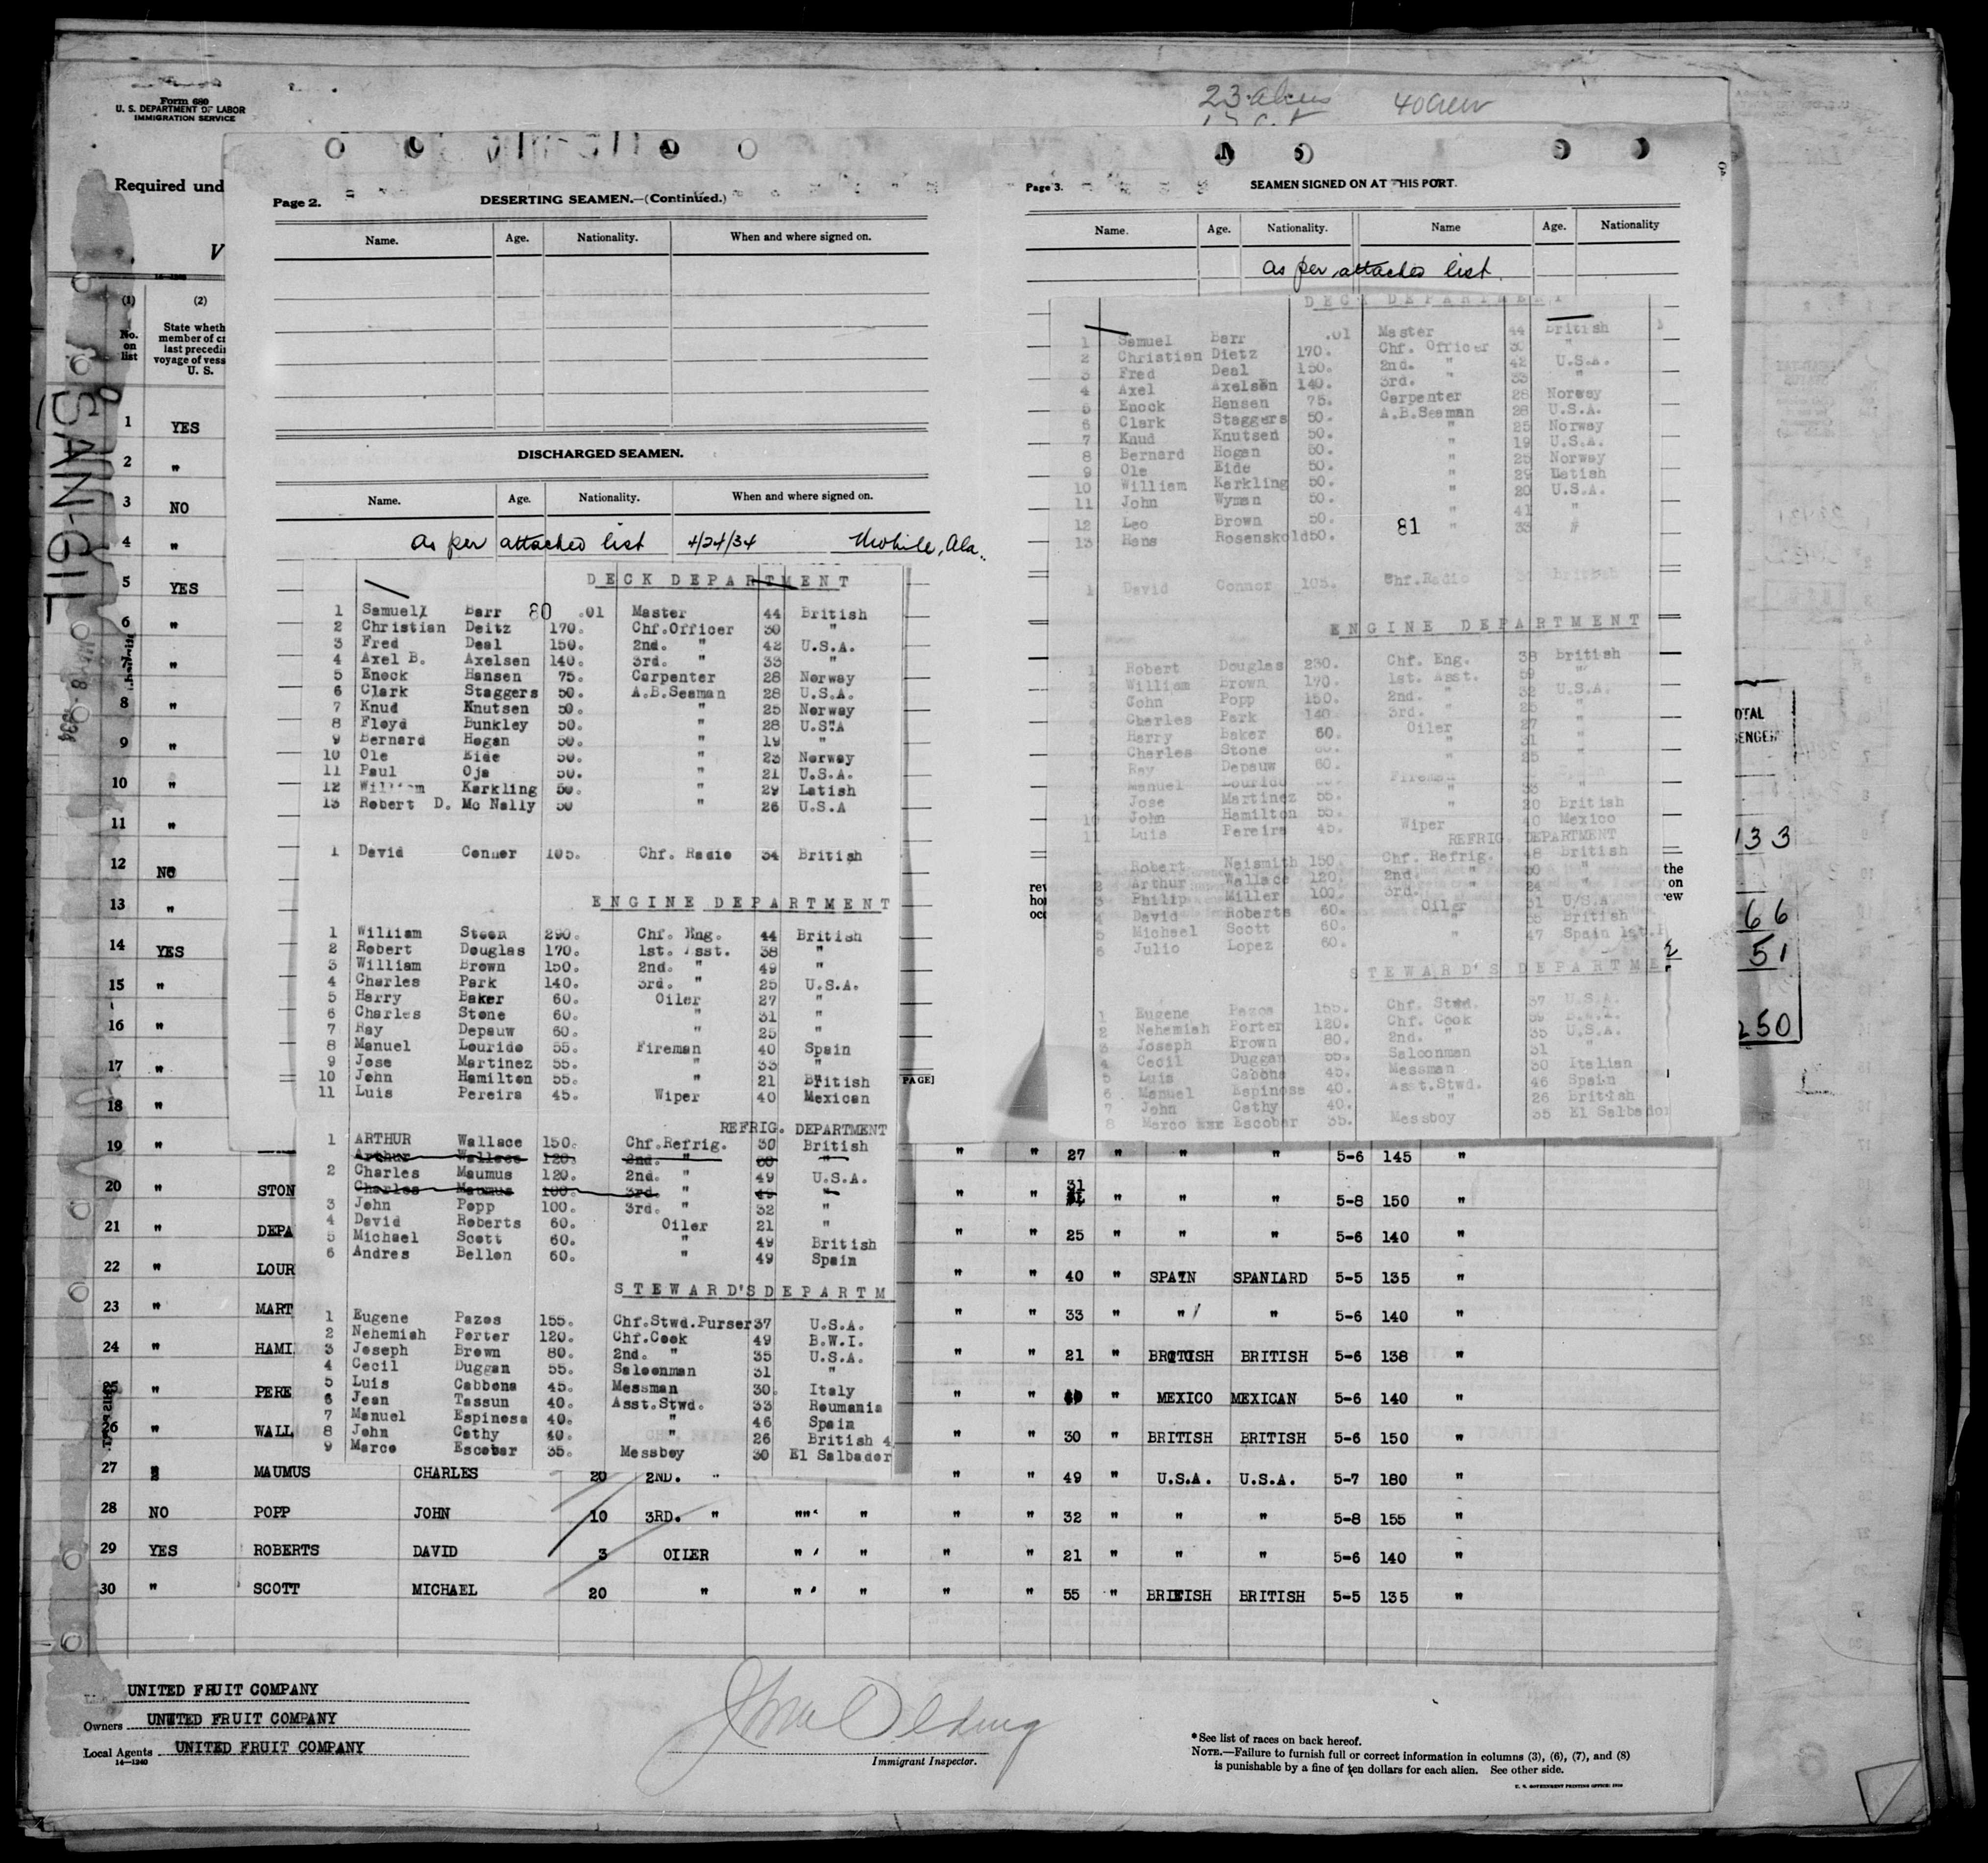 Form 680
U. S. DEPARTMENT OF LABOR
IMMIGRATION SERVICE
23 aliens 40 crew
Required und
V
14-1240
(1) (2)
No. on list
State wheth
member of cr
last precedi
voyage of vess
U. S.
SAN GIL
1 YES
2 "
3 NO
4 "
5 YES
6 "
7 "
8 "
9 "
10 "
11 "
12 NO
13 "
14 YES
15 "
16 "
17 "
18 "
Page 2.
DESERTING SEAMEN.—(Continued.)
Name. Age. Nationality. When and where signed on.
DISCHARGED SEAMEN.
Name. Age. Nationality. When and where signed on.
as per attached list 4/24/34 Mobile, Ala.
DECK DEPARTMENT
1 Samuel Barr 80 .01 Master 44 British
2 Christian Deitz 170. Chf.Officer 30 "
3 Fred Deal 150. 2nd. " 42 U.S.A.
4 Axel B. Axelsen 140. 3rd. " 33 "
5 Enock Hansen 75. Carpenter 28 Norway
6 Clark Staggers 50. A.B.Seaman 28 U.S.A.
7 Knud Knutsen 50. " 25 Norway
8 Floyd Bunkley 50. " 28 U.S.A
9 Bernard Hogan 50. " 19 "
10 Ole Eide 50. " 23 Norway
11 Paul Oja 50. " 21 U.S.A.
12 William Karkling 50. " 29 Latish
13 Robert D. Mc Nally 50 " 26 U.S.A
1 David Conner 105. Chf. Radio 34 British
ENGINE DEPARTMENT
1 William Steen 290. Chf. Eng. 44 British
2 Robert Douglas 170. 1st. Asst. 38 "
3 William Brown 150. 2nd. " 49 "
4 Charles Park 140. 3rd. " 25 U.S.A.
5 Harry Baker 60. Oiler 27 "
6 Charles Stone 60. " 31 "
7 Ray Depauw 60. " 25 "
8 Manuel Lourido 55. Fireman 40 Spain
9 Jose Martinez 55. " 33 "
10 John Hamilton 55. " 21 British
11 Luis Pereira 45. Wiper 40 Mexican
REFRIG. DEPARTMENT
1 ARTHUR Wallace 150. Chf.Refrig. 30 British
Arthur Wallace 120. 2nd. " 60 "
2 Charles Maumus 120. 2nd. " 49 U.S.A.
Charles Maumus 100. 3rd. " 49 "
3 John Popp 100. 3rd. " 32 "
4 David Roberts 60. Oiler 21 "
5 Michael Scott 60. " 49 British
6 Andres Bellon 60. " 49 Spain
STEWARD'S DEPARTM
1 Eugene Pazos 155. Chf.Stwd.Purser 37 U.S.A.
2 Nehemiah Porter 120. Chf.Cook 49 B.W.I.
3 Joseph Brown 80. 2nd. " 35 U.S.A.
4 Cecil Duggan 55. Saloonman 31 "
5 Luis Cabbona 45. Messman 30. Italy
6 Jean Tassun 40. Asst.Stwd. 33 Roumania
7 Manuel Espinosa 40. " 46 Spain
8 John Cathy 40. " 26 British 4
9 Marco Escobar 35. Messboy 30 El Salbador
Page 3.
SEAMEN SIGNED ON AT THIS PORT.
Name. Age. Nationality. Name Age. Nationality
as per attached list
DECK DEPARTMENT
1 Samuel Barr .01 Master 44 British
2 Christian Dietz 170. Chf. Officer 30 "
3 Fred Deal 150. 2nd. " 42 U.S.A.
4 Axel Axelsen 140. 3rd. " 33 "
5 Enock Hansen 75. Carpenter 28 Norway
6 Clark Staggers 50. A.B.Seaman 28 U.S.A.
7 Knud Knutsen 50. " 25 Norway
8 Bernard Hogan 50. " 19 U.S.A.
9 Ole Eide 50. " 25 Norway
10 William Karkling 50. " 29 Latish
11 John Wyman 50. " 20 U.S.A.
12 Leo Brown 50. " 41 "
13 Hans Rosenskold 50. 81 " 33 "
1 David Connor 105. Chf.Radio British
ENGINE DEPARTMENT
1 Robert Douglas 230. Chf. Eng. 38 British
2 William Brown 170. 1st. Asst. 59 "
3 John Popp 150. 2nd. " 32 U.S.A.
4 Charles Park 140. 3rd. " 25 "
5 Harry Baker 60. Oiler 27 "
Charles Stone 60. " 31 "
Ray Depauw 60. " 25 "
Manuel Lourido Fireman
9 Jose Martinez 55. " 33 "
10 John Hamilton 55. " 20 British
11 Luis Pereira 45. Wiper 40 Mexico
REFRIG. DEPARTMENT
1 Robert Neismith 150. Chf. Refrig. 48 British
2 Arthur Wallace 120. 2nd. " 30 "
3 Philip Miller 100. 3rd. " 24 "
4 David Roberts 60. Oiler 31 U.S.A
5 Michael Scott 60. " 55 British
6 Julio Lopez 60. " 47 Spain 1st.P
STEWARD'S DEPARTME
1 Eugene Pazos 155. Chf. Stwd. 37 U.S.A.
2 Nehemiah Porter 120. Chf. Cook 59 B.W.I.
3 Joseph Brown 80. 2nd. " 35 U.S.A.
4 Cecil Duggan 55. Saloonman 31 "
5 Luis Cabona 45. Messman 30 Italian
6 Manuel Espinosa 40. Asst.Stwd. 46 Spain
7 John Cathy 40. " 26 British
8 Marco Escobar 35. Messboy 35 El Salbador
rev
hon
occ
the
on
ew
PAGE]
OTAL
SENGER
133
66
51
250
19 " " " 27 " " " 5-6 145 "
20 " STON " " 31 " " " 5-8 150 "
21 " DEPA " " 25 " " " 5-6 140 "
22 " LOUR " " 40 " SPAIN SPANIARD 5-5 135 "
23 " MART " " 33 " " " 5-6 140 "
24 " HAMI " " 21 " BRITISH BRITISH 5-6 138 "
25 " PERE " " 40 " MEXICO MEXICAN 5-6 140 "
26 " WALL " " 30 " BRITISH BRITISH 5-6 150 "
27 " MAUMUS CHARLES 20 2ND. " " " 49 " U.S.A. U.S.A. 5-7 180 "
28 NO POPP JOHN 10 3RD. " "" " " " 32 " " " 5-8 155 "
29 YES ROBERTS DAVID 3 OILER " " " " 21 " " " 5-6 140 "
30 " SCOTT MICHAEL 20 " " " " " 55 " BRITISH BRITISH 5-5 135 "
UNITED FRUIT COMPANY
Owners UNITED FRUIT COMPANY
Local Agents UNITED FRUIT COMPANY
14-1240
Immigrant Inspector.
*See list of races on back hereof.
NOTE.—Failure to furnish full or correct information in columns (3), (6), (7), and (8)
is punishable by a fine of ten dollars for each alien. See other side.
U. S. GOVERNMENT PRINTING OFFICE